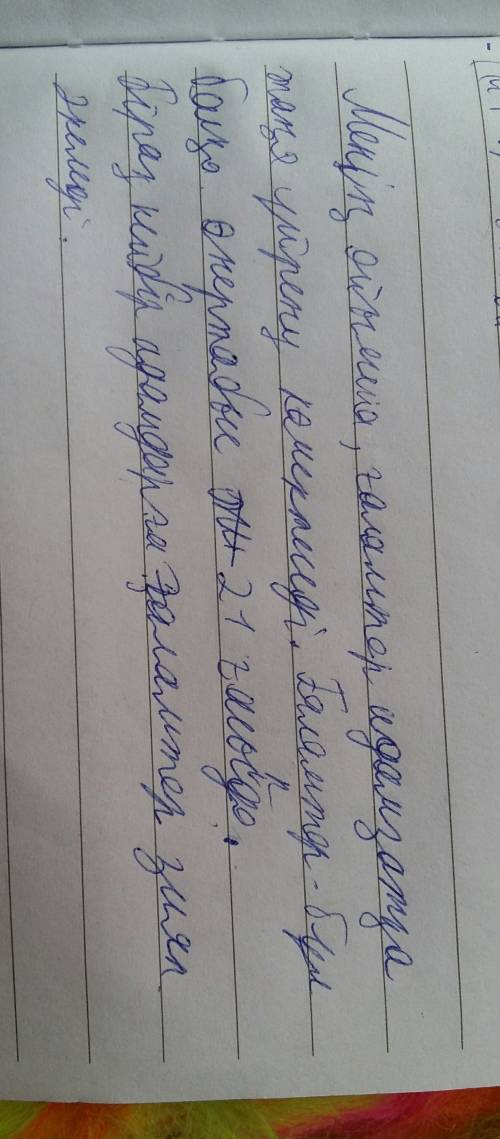 Менің ойымша, ғаламтор адамзатқа
жаңа үйрену көмектеседі. Ғаламтор - бұл
баға өнертабыс 21 ғасырда.
Бірақ кейбір адамдарға ғаламтор зиян
әкелді.